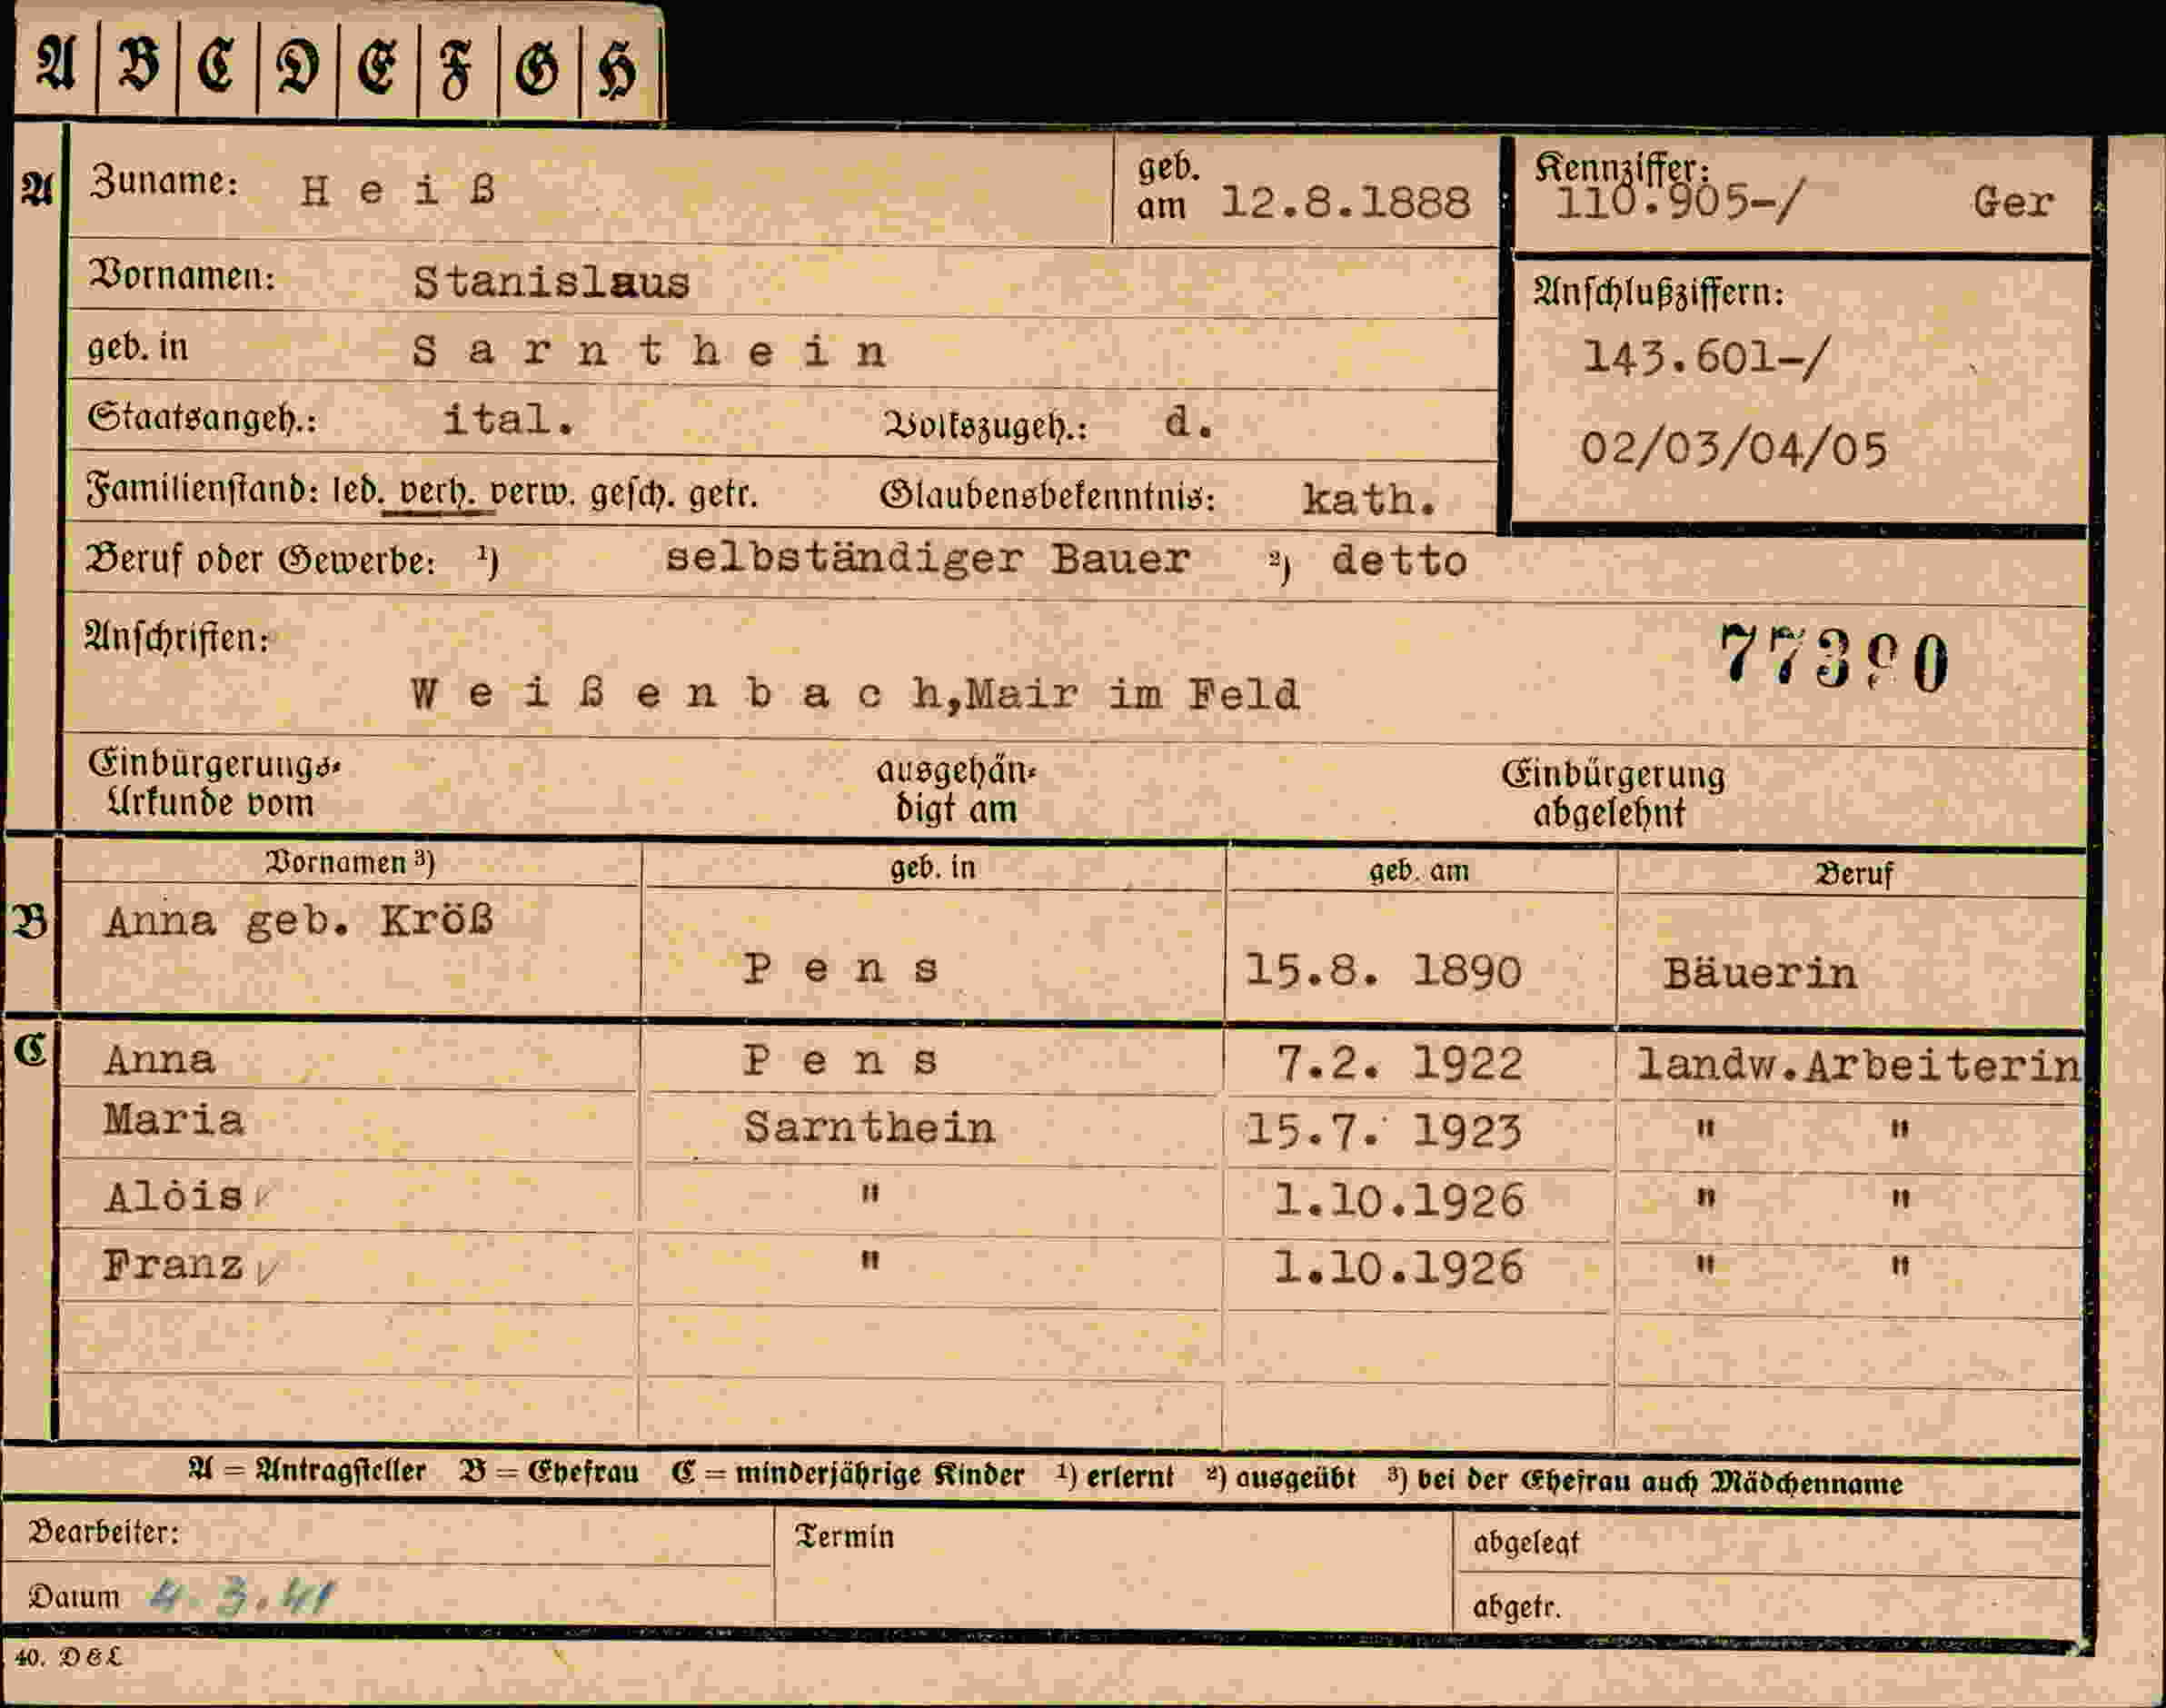 A B C D E F G H
A Zuname: H e i ß geb. am 12.8.1888 Kennziffer: 110.905-/ Ger
Vornamen: Stanislaus
Anschlußziffern:
geb. in S a r n t h e i n 143.601-/
Staatsangeh.: ital. Volkszugeh.: d. 02/03/04/05
Familienstand: led. verh. verw. gesch. getr. Glaubensbekenntnis: kath.
Beruf oder Gewerbe: ¹) selbständiger Bauer ²) detto
Anschriften:
W e i ß e n b a c h,Mair im Feld
Einbürgerungs-Urkunde vom ausgehän-digt am Einbürgerung abgelehnt
Vornamen ³) geb. in geb. am Beruf
B Anna geb. Kröß
P e n s 15.8. 1890 Bäuerin
C Anna P e n s 7.2. 1922 landw.Arbeiterin
Maria Sarnthein 15.7. 1923 " "
Alois " 1.10.1926 " "
Franz " 1.10.1926 " "
A = Antragsteller B = Ehefrau C = minderjährige Kinder ¹) erlernt ²) ausgeübt ³) bei der Ehefrau auch Mädchenname
Bearbeiter: Termin abgelegt
Datum 4.3.41 abgetr.
40. D&L